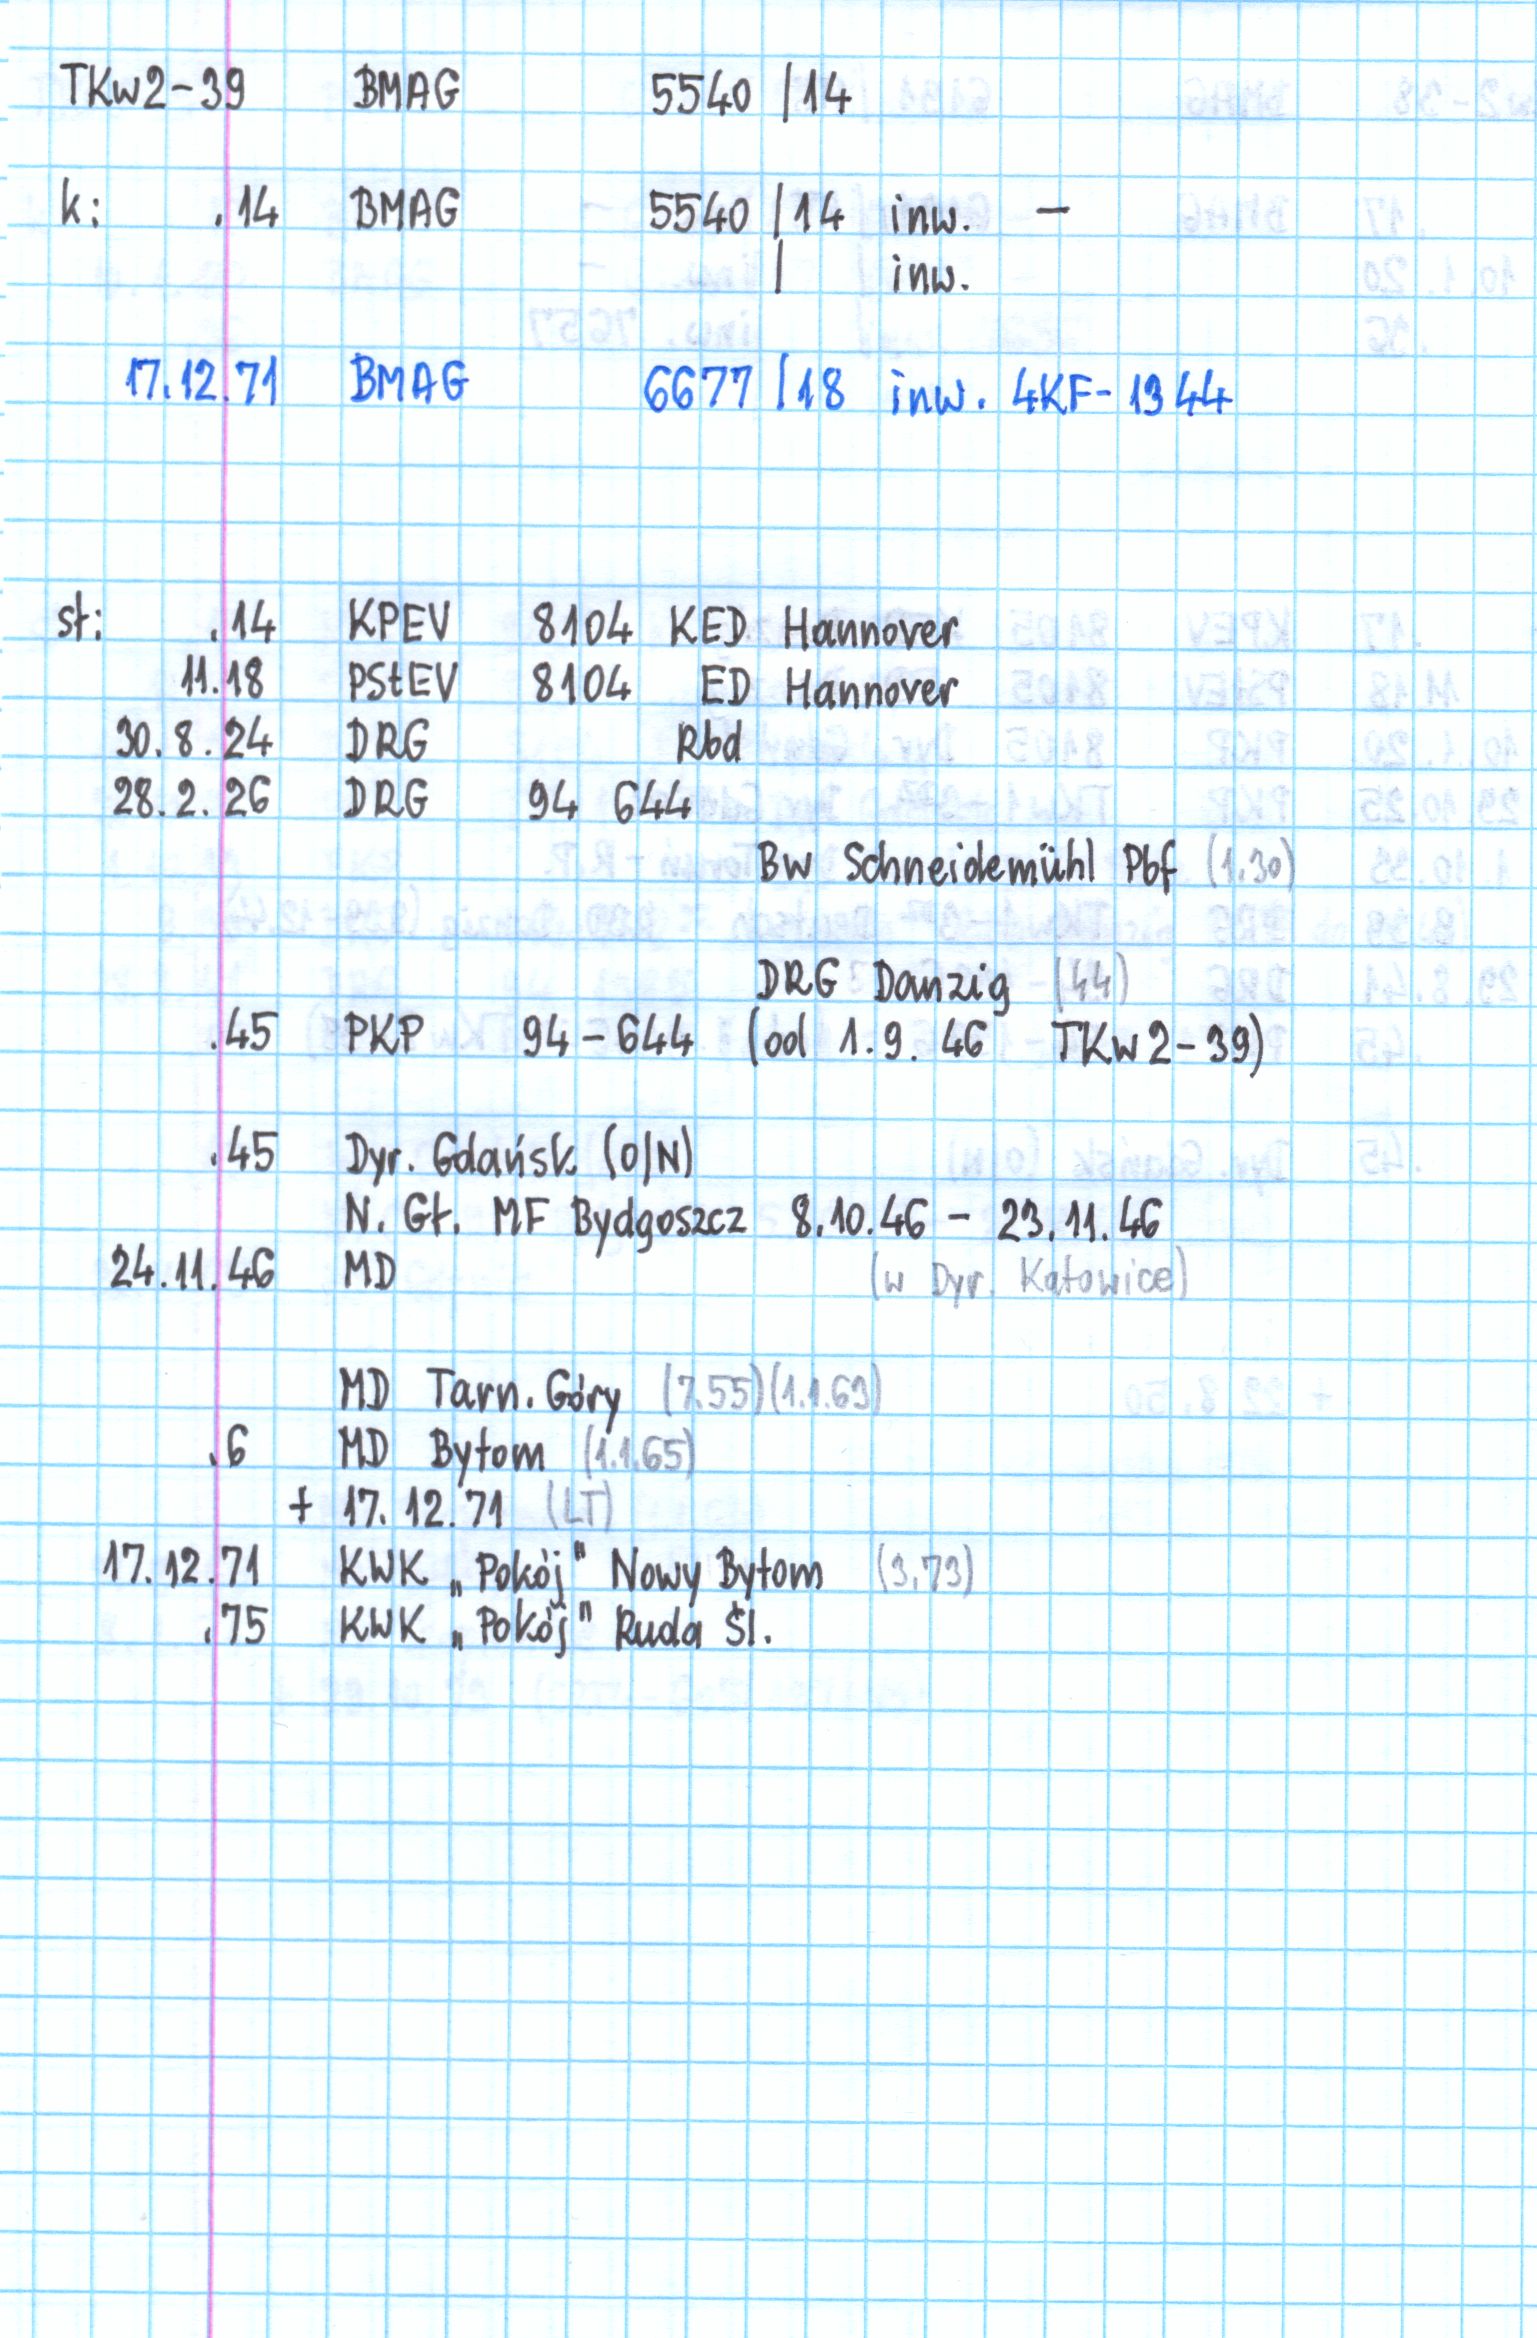 TKw2-39 BMAG 5540/14
k: .14 BMAG 5540/14 inw. -
/ inw.
17.12.71 BMAG 6677/18 inw. 4KF-1344
st: .14 KPEV 8104 KED Hannover
11.18 PStEV 8104 ED Hannover
30.8.24 DRG Rbd
28.2.26 DRG 94 644
Bw Schneidemühl Pbf (1.30)
DRG Danzig (44)
.45 PKP 94-644 (od 1.9.46 TKw2-39)
.45 Dyr. Gdańsk (O/N)
N. Gł. MF Bydgoszcz 8.10.46 - 23.11.46
24.11.46 MD (w Dyr. Katowice)
MD Tarn. Góry (7.55)(1.1.63)
.6 MD Bytom (1.1.65)
+ 17.12.71 (LT)
17.12.71 KWK „Pokój" Nowy Bytom (3.73)
.75 KWK „Pokój" Ruda Śl.